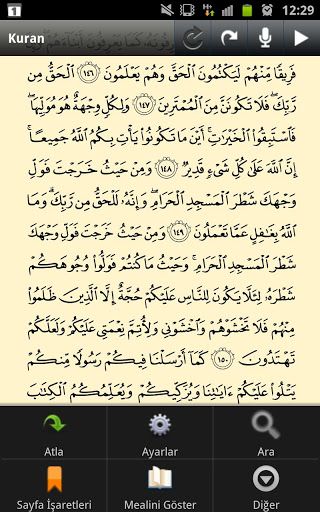 1 12:29
Kuran
فَرِيقًا مِّنْهُمْ لَيَكْتُمُونَ الْحَقَّ وَهُمْ يَعْلَمُونَ ﴿١٤٦﴾ الْحَقُّ مِن
رَّبِّكَ فَلَا تَكُونَنَّ مِنَ الْمُمْتَرِينَ ﴿١٤٧﴾ وَلِكُلٍّ وِجْهَةٌ هُوَ مُوَلِّيهَا
فَاسْتَبِقُوا الْخَيْرَاتِ أَيْنَ مَا تَكُونُوا يَأْتِ بِكُمُ اللَّهُ جَمِيعًا
إِنَّ اللَّهَ عَلَىٰ كُلِّ شَيْءٍ قَدِيرٌ ﴿١٤٨﴾ وَمِنْ حَيْثُ خَرَجْتَ فَوَلِّ
وَجْهَكَ شَطْرَ الْمَسْجِدِ الْحَرَامِ وَإِنَّهُ لَلْحَقُّ مِن رَّبِّكَ وَمَا
اللَّهُ بِغَافِلٍ عَمَّا تَعْمَلُونَ ﴿١٤٩﴾ وَمِنْ حَيْثُ خَرَجْتَ فَوَلِّ وَجْهَكَ
شَطْرَ الْمَسْجِدِ الْحَرَامِ وَحَيْثُ مَا كُنتُمْ فَوَلُّوا وُجُوهَكُمْ
شَطْرَهُ لِئَلَّا يَكُونَ لِلنَّاسِ عَلَيْكُمْ حُجَّةٌ إِلَّا الَّذِينَ ظَلَمُوا
مِنْهُمْ فَلَا تَخْشَوْهُمْ وَاخْشَوْنِي وَلِأُتِمَّ نِعْمَتِي عَلَيْكُمْ وَلَعَلَّكُمْ
تَهْتَدُونَ ﴿١٥٠﴾ كَمَا أَرْسَلْنَا فِيكُمْ رَسُولًا مِّنكُمْ
يَتْلُو عَلَيْكُمْ آيَاتِنَا وَيُزَكِّيكُمْ وَيُعَلِّمُكُمُ الْكِتَابَ
Atla Ayarlar Ara
Sayfa İşaretleri Mealini Göster Diğer